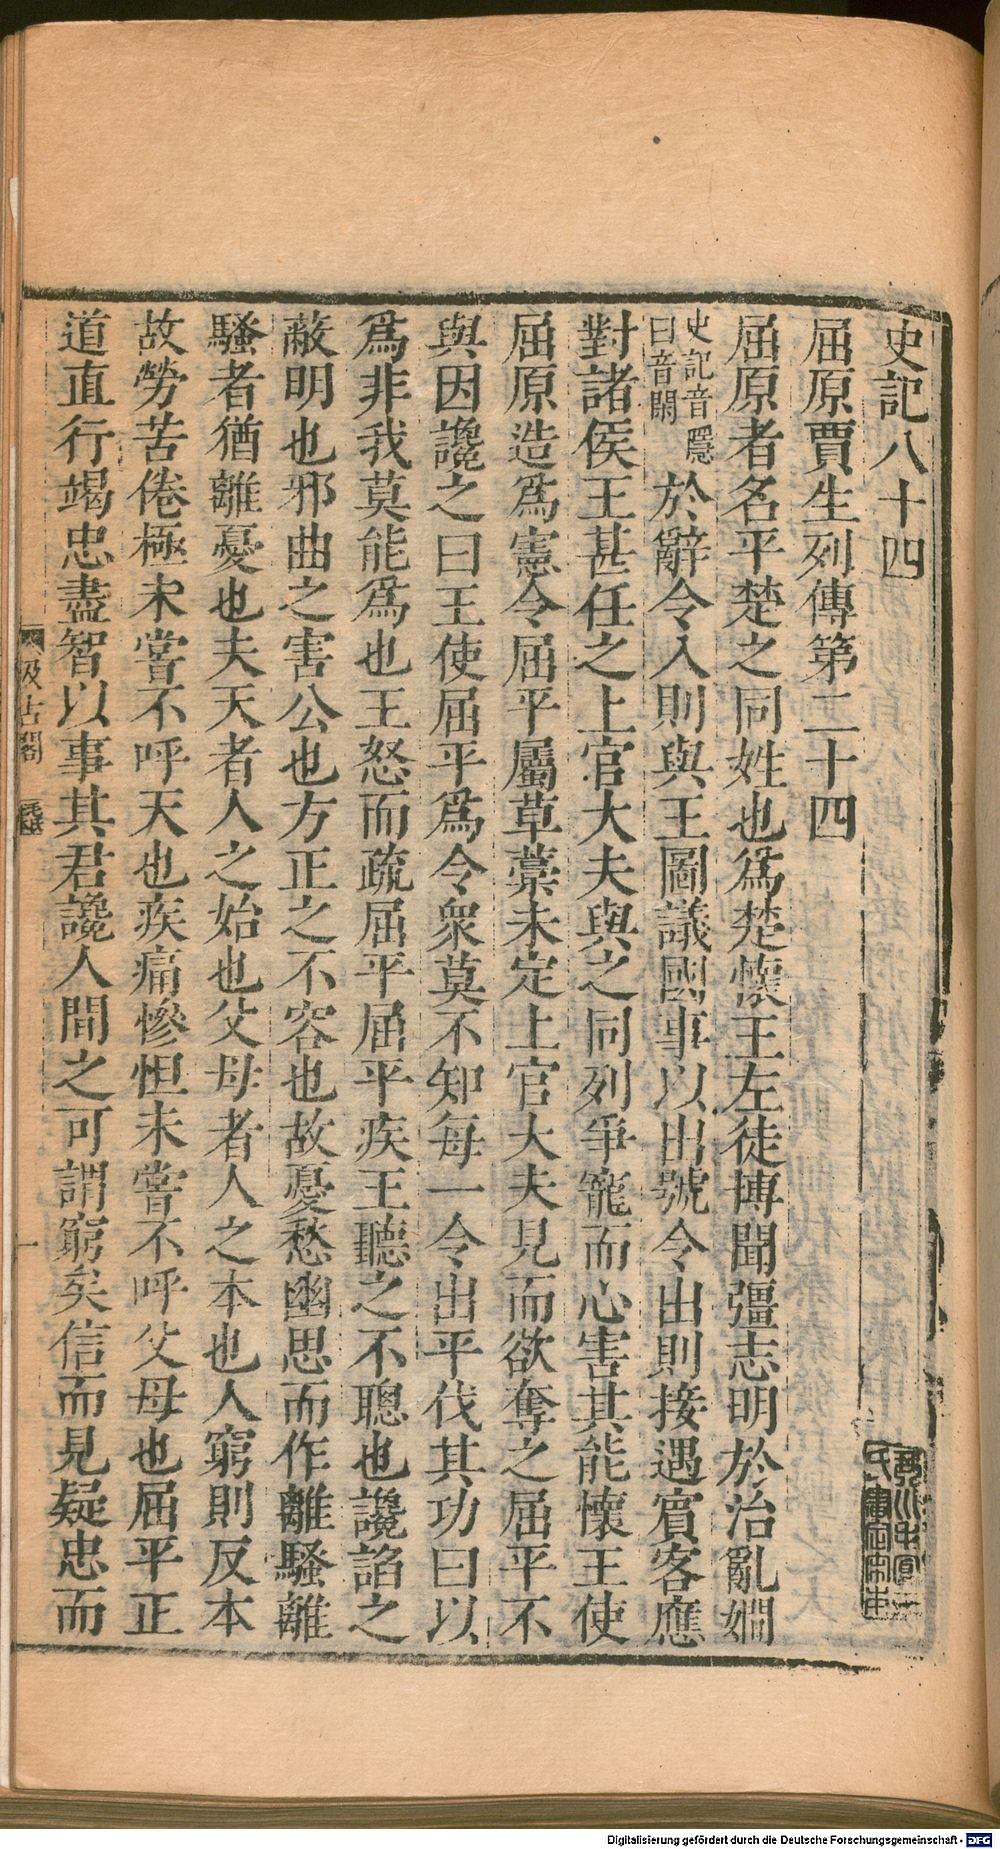 史記八十四
屈原賈生列傳第二十四
屈原者名平楚之同姓也爲楚懷王左徒博聞彊志明於治亂嫺
史記音隱
曰音閑
於辭令入則與王圖議國事以出號令出則接遇賓客應
對諸侯王甚任之上官大夫與之同列爭寵而心害其能懷王使
屈原造爲憲令屈平屬草藁未定上官大夫見而欲奪之屈平不
與因讒之曰王使屈平爲令衆莫不知每一令出平伐其功曰以
爲非我莫能爲也王怒而疏屈平屈平疾王聽之不聰也讒諂之
蔽明也邪曲之害公也方正之不容也故憂愁幽思而作離騷離
騷者猶離憂也夫天者人之始也父母者人之本也人窮則反本
故勞苦倦極未嘗不呼天也疾痛慘怛未嘗不呼父母也屈平正
道直行竭忠盡智以事其君讒人間之可謂窮矣信而見疑忠而
汲古閣
一
Digitalisierung gefördert durch die Deutsche Forschungsgemeinschaft - DFG